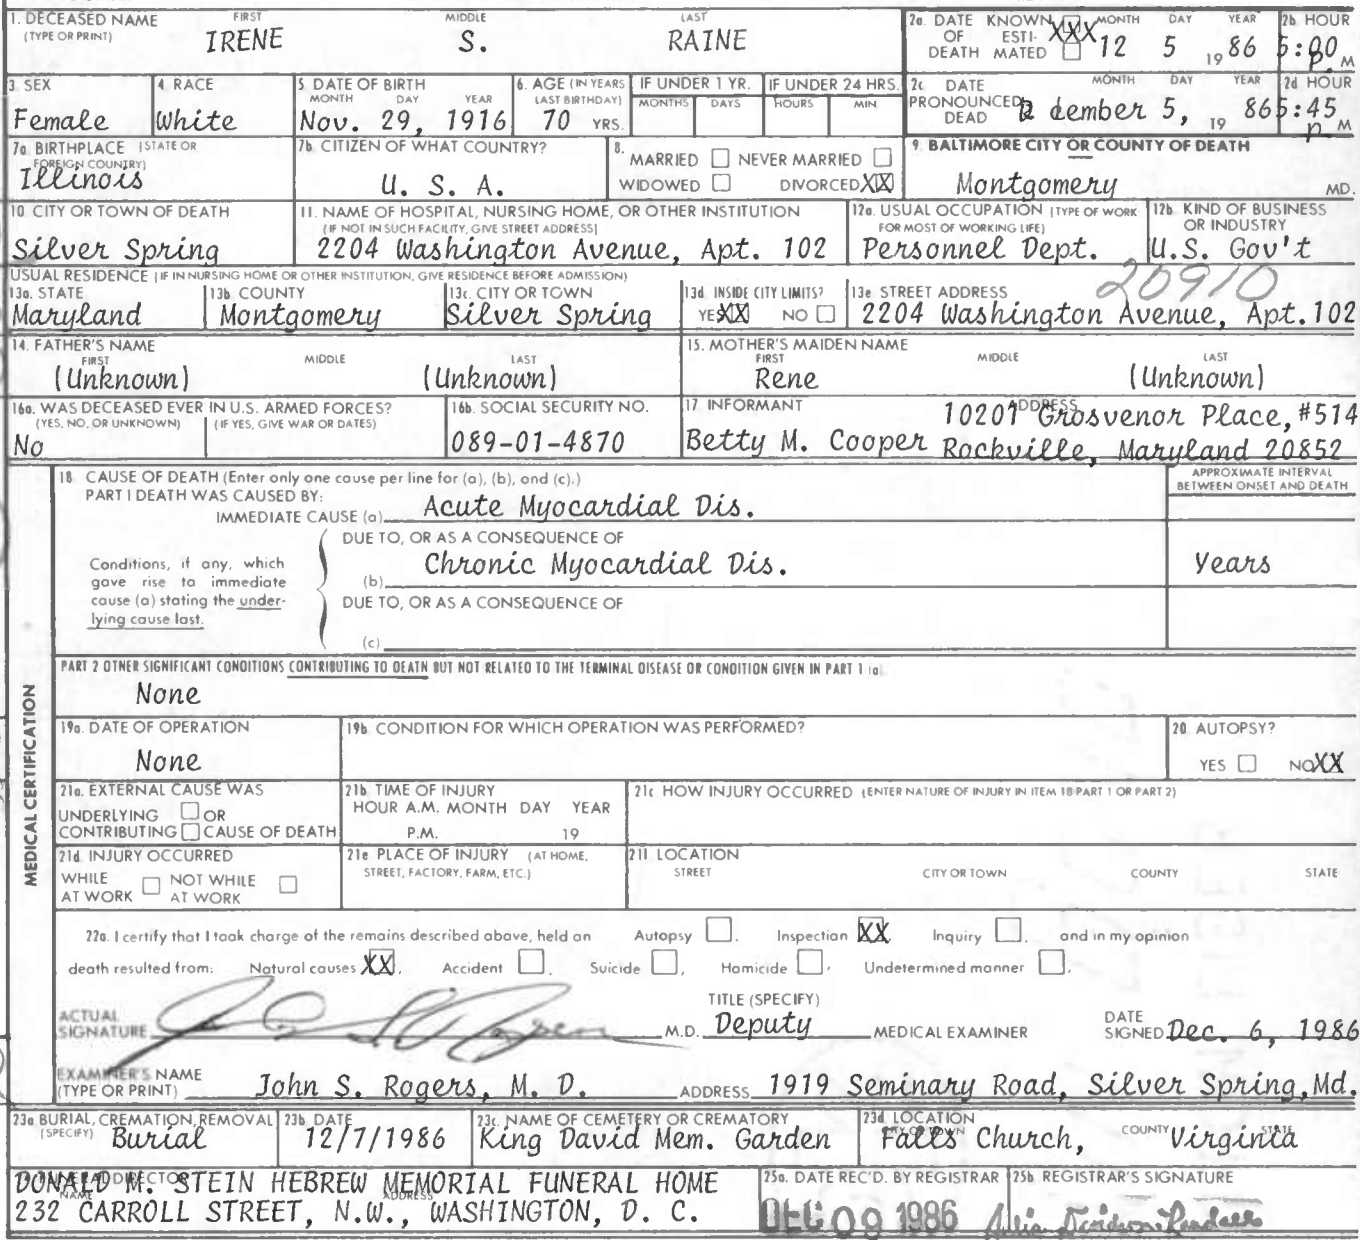 1. DECEASED NAME (TYPE OR PRINT) FIRST IRENE MIDDLE S. LAST RAINE
2a. DATE OF DEATH KNOWN XXX ESTIMATED MONTH 12 DAY 5 YEAR 19 86 2b HOUR 5:00 P. M
3. SEX Female
4. RACE White
5. DATE OF BIRTH MONTH DAY YEAR Nov. 29, 1916
6. AGE (IN YEARS LAST BIRTHDAY) 70 YRS.
IF UNDER 1 YR. MONTHS DAYS
IF UNDER 24 HRS. HOURS MIN
2c DATE PRONOUNCED DEAD MONTH DAY YEAR dember 5, 19 86 2d HOUR 5:45 p. M
7a BIRTHPLACE (STATE OR FOREIGN COUNTRY) Illinois
7b. CITIZEN OF WHAT COUNTRY? U. S. A.
8. MARRIED NEVER MARRIED
WIDOWED DIVORCED XX
9. BALTIMORE CITY OR COUNTY OF DEATH Montgomery MD.
10. CITY OR TOWN OF DEATH Silver Spring
11. NAME OF HOSPITAL, NURSING HOME, OR OTHER INSTITUTION
(IF NOT IN SUCH FACILITY, GIVE STREET ADDRESS)
2204 Washington Avenue, Apt. 102
12a. USUAL OCCUPATION (TYPE OF WORK FOR MOST OF WORKING LIFE) Personnel Dept.
12b. KIND OF BUSINESS OR INDUSTRY U.S. Gov't
USUAL RESIDENCE (IF IN NURSING HOME OR OTHER INSTITUTION, GIVE RESIDENCE BEFORE ADMISSION)
20910
13a. STATE Maryland
13b. COUNTY Montgomery
13c. CITY OR TOWN Silver Spring
13d. INSIDE CITY LIMITS? YES XX NO
13e STREET ADDRESS 2204 Washington Avenue, Apt.102
14. FATHER'S NAME FIRST (Unknown) MIDDLE LAST (Unknown)
15. MOTHER'S MAIDEN NAME FIRST Rene MIDDLE LAST (Unknown)
16a. WAS DECEASED EVER IN U.S. ARMED FORCES?
(YES, NO, OR UNKNOWN) (IF YES, GIVE WAR OR DATES)
No
16b. SOCIAL SECURITY NO. 089-01-4870
17 INFORMANT Betty M. Cooper
ADDRESS 10201 Grosvenor Place, #514
Rockville, Maryland 20852
MEDICAL CERTIFICATION
18. CAUSE OF DEATH (Enter only one cause per line for (a), (b), and (c).)
APPROXIMATE INTERVAL BETWEEN ONSET AND DEATH
PART I DEATH WAS CAUSED BY:
IMMEDIATE CAUSE (a) Acute Myocardial Dis.
Conditions, if any, which gave rise to immediate cause (a) stating the underlying cause last.
DUE TO, OR AS A CONSEQUENCE OF
(b) Chronic Myocardial Dis. Years
DUE TO, OR AS A CONSEQUENCE OF
(c)
PART 2 OTHER SIGNIFICANT CONDITIONS CONTRIBUTING TO DEATH BUT NOT RELATED TO THE TERMINAL DISEASE OR CONDITION GIVEN IN PART 1 (a).
None
19a. DATE OF OPERATION None
19b. CONDITION FOR WHICH OPERATION WAS PERFORMED?
20. AUTOPSY? YES NO XX
21a. EXTERNAL CAUSE WAS
UNDERLYING OR
CONTRIBUTING CAUSE OF DEATH
21b. TIME OF INJURY
HOUR A.M. MONTH DAY YEAR
P.M. 19
21c HOW INJURY OCCURRED (ENTER NATURE OF INJURY IN ITEM 18 PART 1 OR PART 2)
21d. INJURY OCCURRED
WHILE AT WORK NOT WHILE AT WORK
21e. PLACE OF INJURY (AT HOME, STREET, FACTORY, FARM, ETC.)
21f. LOCATION
STREET CITY OR TOWN COUNTY STATE
22a. I certify that I took charge of the remains described above, held an Autopsy , Inspection XX, Inquiry , and in my opinion
death resulted from: Natural causes XX, Accident , Suicide , Homicide , Undetermined manner .
ACTUAL SIGNATURE M.D. TITLE (SPECIFY) Deputy MEDICAL EXAMINER DATE SIGNED Dec. 6, 1986
EXAMINER'S NAME (TYPE OR PRINT) John S. Rogers, M. D. ADDRESS 1919 Seminary Road, Silver Spring, Md.
23a BURIAL, CREMATION, REMOVAL (SPECIFY) Burial
23b. DATE 12/7/1986
23c. NAME OF CEMETERY OR CREMATORY King David Mem. Garden
23d. LOCATION CITY OR TOWN Falls Church, COUNTY STATE Virginia
DONALD M. STEIN HEBREW MEMORIAL FUNERAL HOME
NAME ADDRESS
232 CARROLL STREET, N.W., WASHINGTON, D. C.
25a. DATE REC'D. BY REGISTRAR DEC 09 1986
25b. REGISTRAR'S SIGNATURE